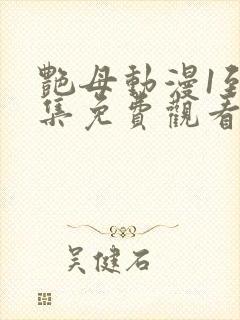 艷母動漫1至
集免費觀看
吴健石